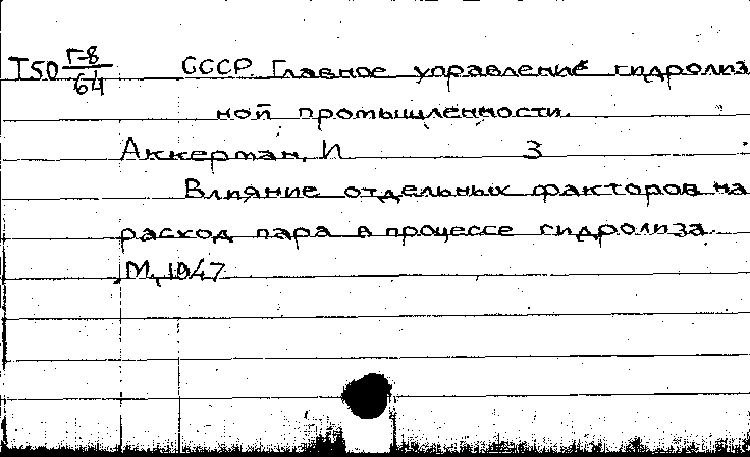 I50 Г-8/64 СССР. Главное управление гидролиз
ной промышленности.
Аккерман, И З
Влияние отдельных факторов на
расход пара в процессе гидролиза.
М., 1947